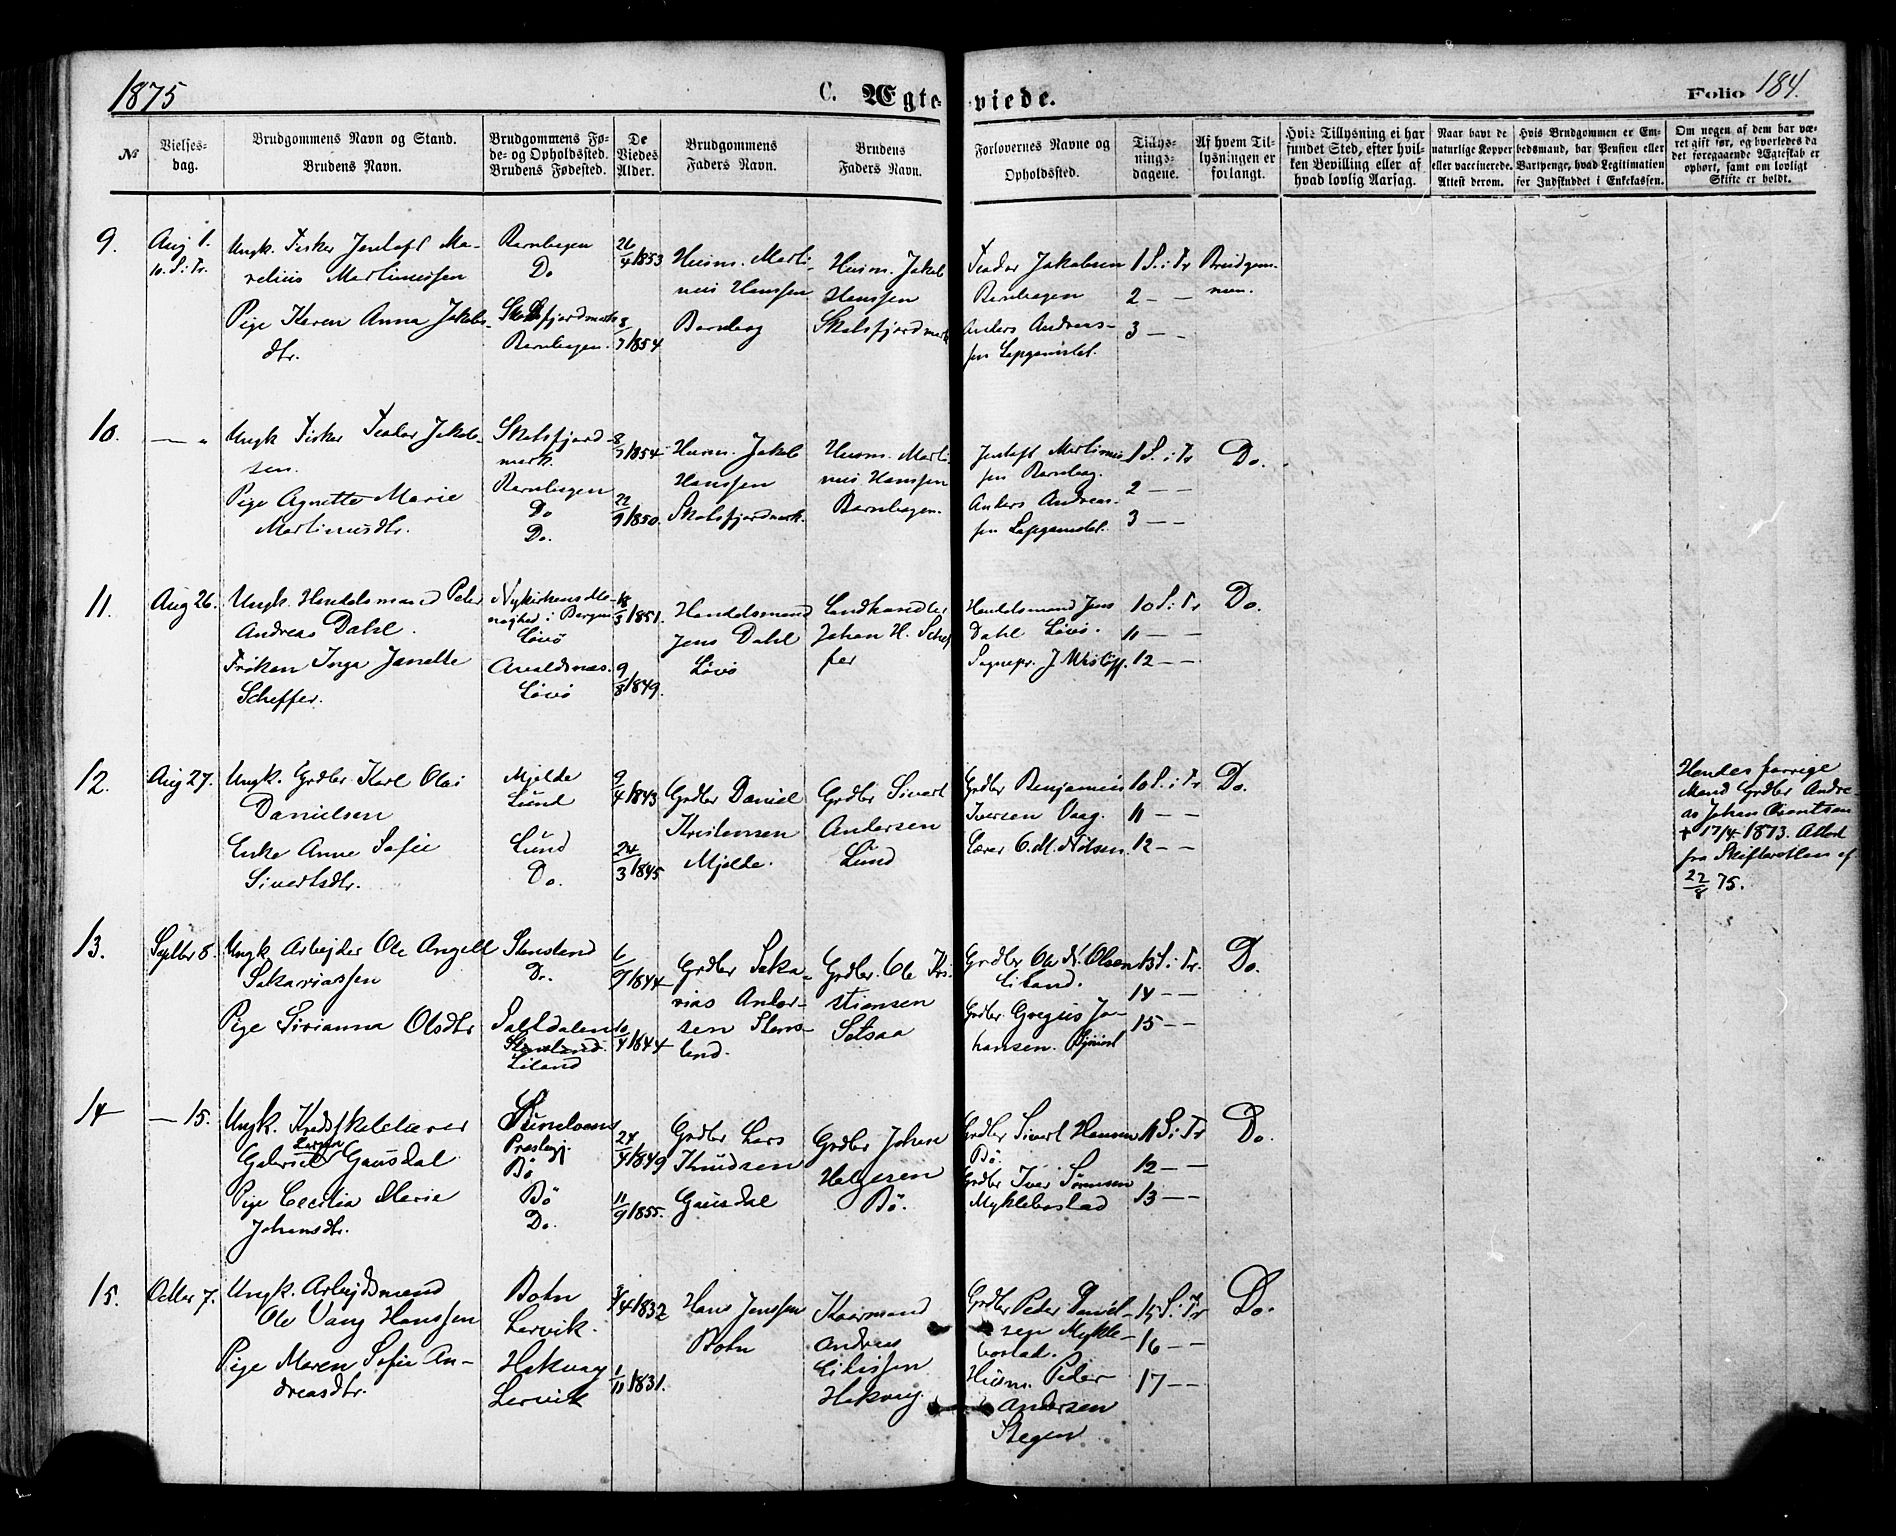 1875
C. Ægteviede.
Folio 184.
№
Vielses-
dag.
Brudgommens Navn og Stand.
Brudens Navn.
Brudgommens Fø-
de- og Opholdssted.
Brudens Fødested.
De
Viedes
Alder.
Brudgommens
Faders Navn.
Brudens
Faders Navn.
Forlovernes Navne og
Opholdssted.
Tillys-
nings-
dagene.
Af hvem Til-
lysningen er
forlangt.
Hvis Tillysning ei har
fundet Sted, efter hvil-
ken Bevilling eller af
hvad lovlig Aarsag.
Naar havt de
naturlige Kopper
eller vaccinerede.
Attest derom.
Hvis Brudgommen er Em-
bedsmand, har Pension eller
Vartpenge, hvad Legitimation
for Indskuddet i Enkekassen.
Om nogen af dem har væ-
ret gift før, og hvorledes da
det foregaaende Ægteskab er
ophørt, samt om lovligt
Skifte er holdt.
9.
Aug 1.
10. S. i Tr.
Ungk. Fisker Jentoft Ma-
relius Martinussen
Pige Karen Anna Jakobs-
dtr.
Do
Skotsfjordmark
26/4 1853
3/7 1854
Husm. Marti-
nus Hanssen
Husm. Jakob
Hanssen
Skotsfjordmark
Teodor Jakobsen
Anders Andreas-
sen
1 S. i Tr
2 — —
3 — —
Brudgom-
men.
10.
— "
Ungk Fisker Teodor Jakob-
sen.
Pige Agnette Marie
Martinusdtr.
Skotsfjord-
mark.
Do
Do.
8/7 1854
1850.
Husm. Jakob
Hanssen
Skotsfjordmark.
Husm. Marti-
nus Hanssen
Jentoft Martinus
sen
Anders Andreas-
sen
1 S. i Tr
2 — —
3 — —
Do.
11.
Aug 26.
Ungk. Handelsmand Peter
Andreas Dahl.
Frøken Inga Janette
Scheffer.
Nykirkens Me-
nighed i Bergen
Løvø
Avaldsnes.
Løvø
18/3 1851.
9/8 1849.
Handelsmand
Jens Dahl
Løvø
Landhandler
Johan H. Schef
fer
Handelsmand Jens
Dahl Løvø.
Sognepr. J Wisløff.
10 S. i Tr
11 — —
12 — —
Do.
12.
Aug 27.
Ungk. Grdbr. Karl Olai
Danielsen
Enke Anne Sofie
Sivertsdtr.
Mjelde
Lund
Lund
Do.
9/4 1843
24/3 1845
Grdbr Daniel
Kristensen
Mjelde.
Grdbr Sivert
Andersen
Lund
Grdbr Benjamin
Iversen Vaag.
Lærer O. M. Nilsen.
10 S. i Tr
11 — —
12 — —
Do.
Hendes forrige
Mand Grdbr Andre
as Johan Arentsen
+ 17/4 1873. Attest
fra Skifteretten af
22/8 75.
13.
Septbr 8.
Ungk. Arbejder Ole Angell
Sakariassen
Pige Sirianna Olsdtr
Stensland
Do.
Saltdalen
Stensland
Liland
6/9 1844
10/4 1844
Grdbr Saka-
rias Ander-
sen Stens-
land.
Grdbr. Ole Kri-
stiansen
Setsaa
Grdbr Ole N. Olsen
Liland.
Grdbr. Gregus Jo-
hansen.
13 S. i Tr.
14 — —
15 — —
Do.
14
— 15.
Ungk. Kredsskolelærer
Larsen
Gabriel Gausdal
Pige Cecilia Marie
Johansdtr.
Præstegj.
Bø
Bø
Do.
24/4 1849
11/9 1855.
Grdbr Lars
Knudsen
Gausdal
Grdbr Johan
Helgesen
Bø.
Grdbr Sivert Hansen
Bø.
Grdbr Iver Sørensen
Myklebostad
11 S. i Tr
12 — —
13 — —
Do.
15.
Octbr 7.
Ungk. Arbejdsmand
Ole Vang Hanssen
Pige Maren Sofie An-
dreasdtr.
Botn
Lervik.
Hakvag
Lervik
1832
1/11 1831.
Hans Jenssen
Botn
Kaarmand
Andreas
Hakvag.
Grdbr Peder Daniel-
sen Mykle-
bostad.
Husm. Peder
Andersen
Stegen
15 S. i Tr
16 — —
17 — —
Do.